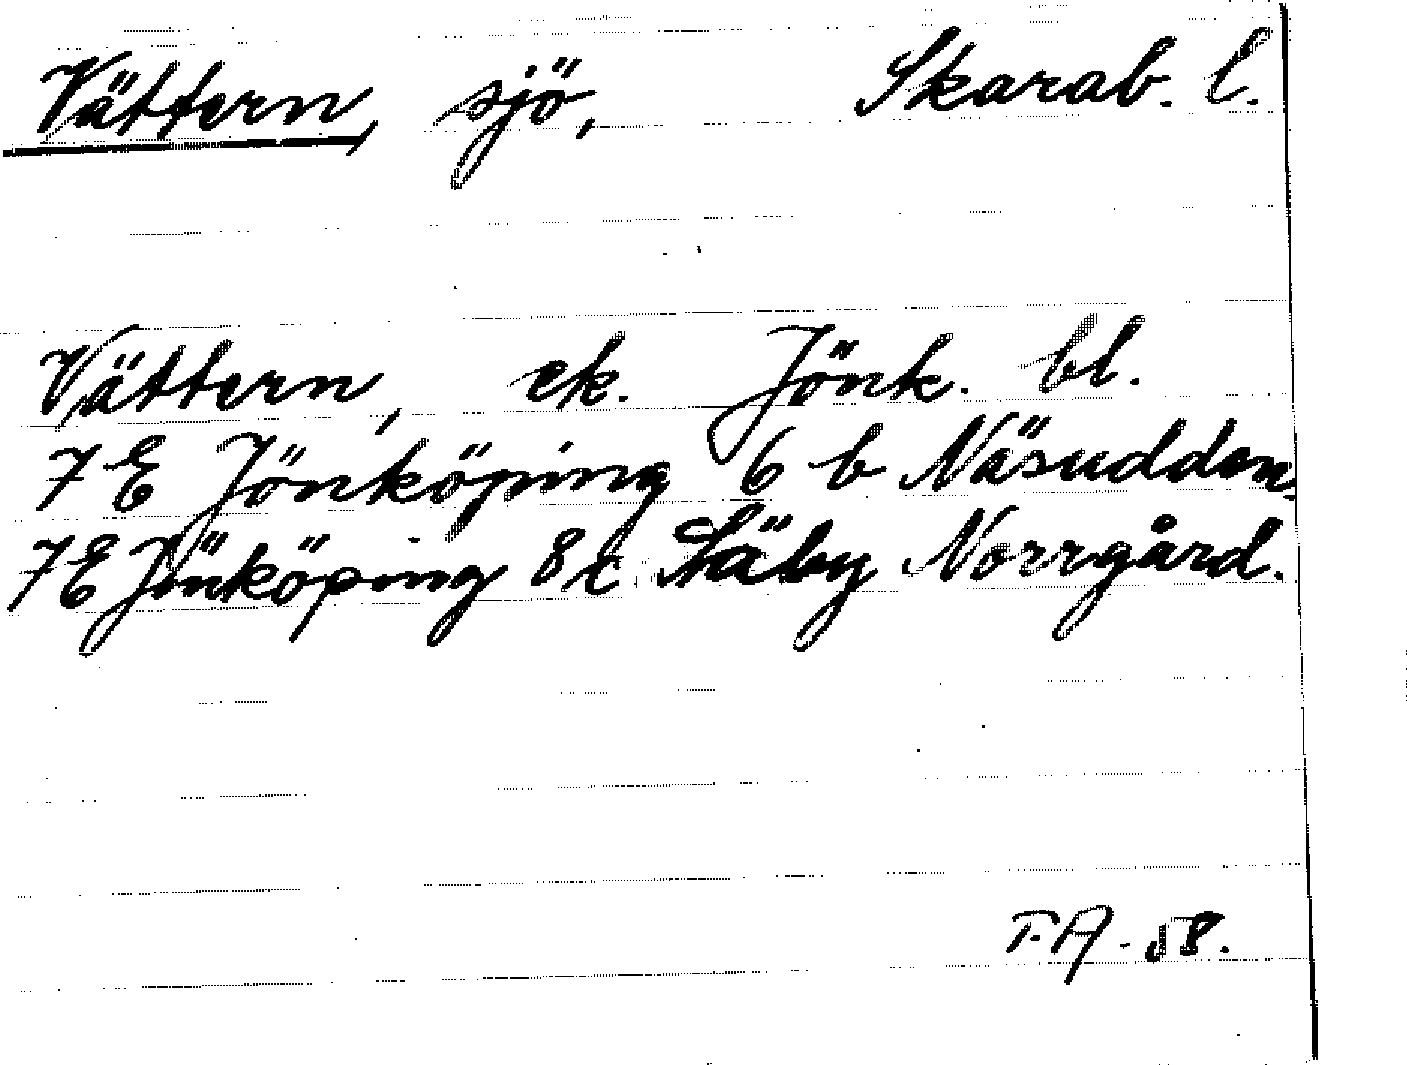 Vättern, sjö, Skarab. l.
Vättern, ek. Jönk. bl.
7 E Jönköping 6 b Näsudden.
7E Jönköping 8c Säby Norrgård.
T.A. -58.